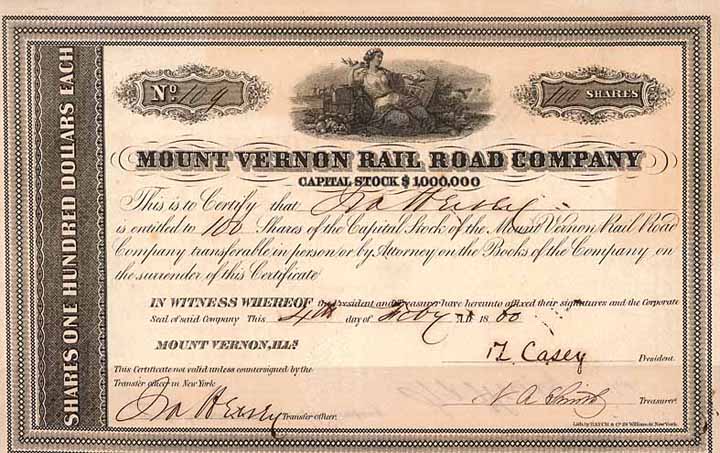 SHARES ONE HUNDRED DOLLARS EACH
No. 109
100 SHARES
MOUNT VERNON RAIL ROAD COMPANY
CAPITAL STOCK $ 1,000,000
This is to Certify that Ira Hersey
is entitled to 100 Shares of the Capital Stock of the Mount Vernon Rail Road
Company transferable in person or by Attorney on the Books of the Company on
the surrender of this Certificate
IN WITNESS WHEREOF the President and Treasurer have hereunto affixed their signatures and the Corporate
Seal of said Company This 4th day of A.D. 18
MOUNT VERNON, ILLS.
Casey
President.
This Certificate not valid unless countersigned by the
Transfer officer in New York
N A Smith
Treasurer
Ira Hersey Transfer officer.
Lith. by HATCH & Co 29 William st. New York.